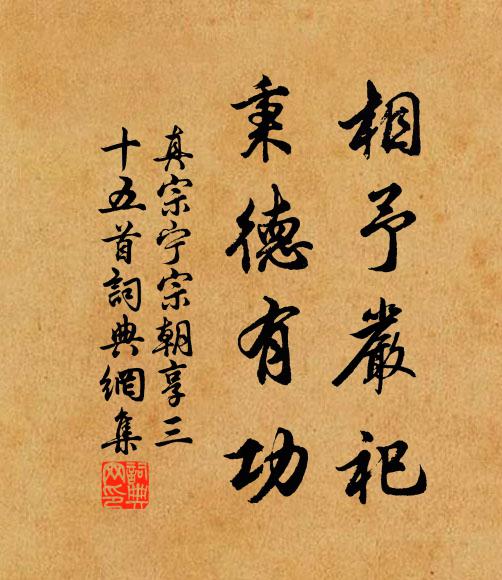 相予嚴祀
秉德有功
真宗宁宗朝享三
十五首詞典網集
詞典網印